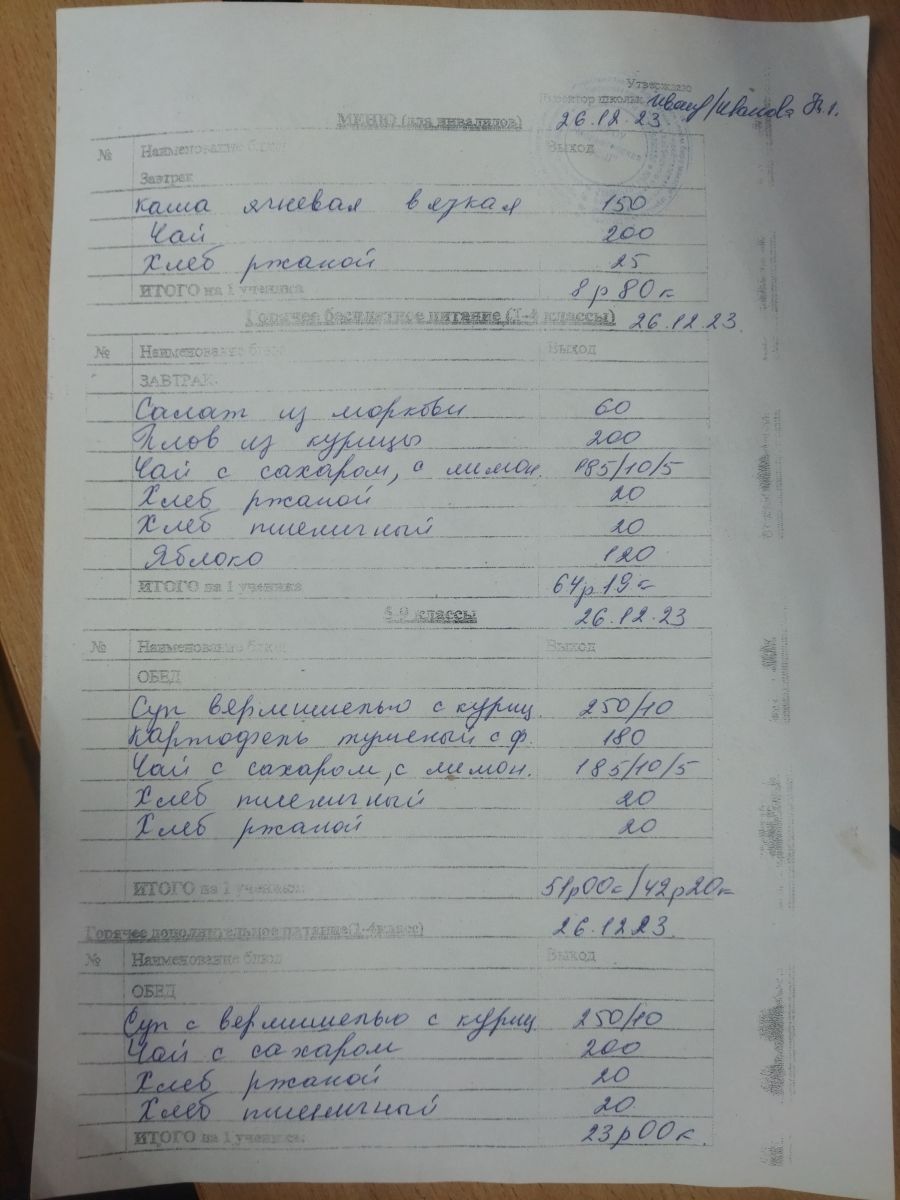 Утверждаю
Директор школы Иванова
МЕНЮ (для инвалидов) 26.12.23
№ Наименование блюд Выход
Завтрак
каша ячневая вязкая 150
Чай 200
Хлеб ржаной 25
ИТОГО на 1 ученика 8р80к
Горячее бесплатное питание (1-4 классы) 26.12.23
№ Наименование блюд Выход
ЗАВТРАК
Салат из моркови 60
Плов из курицы 200
Чай с сахаром, с лимон. 185/10/5
Хлеб ржаной 20
Хлеб пшеничный 20
Яблоко 120
ИТОГО на 1 ученика 64р19к
5-9 классы 26.12.23
№ Наименование блюд Выход
ОБЕД
Суп вермишелью с куриц. 250/10
Картофель тушеный с ф. 180
Чай с сахаром, с лимон. 185/10/5
Хлеб пшеничный 20
Хлеб ржаной 20
ИТОГО на 1 ученика: 51р00к/42р20к
Горячее дополнительное питание(1-4класс) 26.12.23.
№ Наименование блюд Выход
ОБЕД
Суп с вермишелью с куриц 250/10
Чай с сахаром 200
Хлеб ржаной 20
Хлеб пшеничный 20
ИТОГО на 1 ученика: 23р00к.